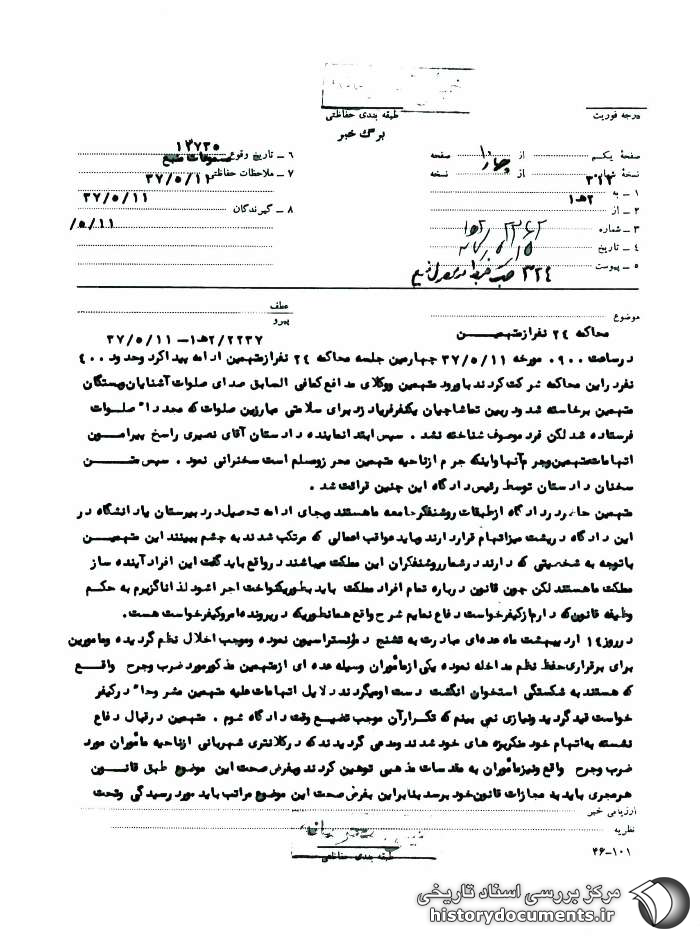 درجه فوریت
طبقه بندی حفاظتی
برگ خبر
صفحهٔ یکم از ۱۰ صفحه
نسخهٔ شماره از ۳ نسخه
۱ ـ به ۲هـ۱
۲ ـ از
۳ ـ شماره
۴ ـ تاریخ
۵ ـ پیوست
۶ ـ تاریخ وقوع
مسموعات منبع
۷ ـ ملاحظات حفاظتی ۳۷/۵/۱۱
۳۷/۵/۱۱
۸ ـ گیرندگان
/۵/۱۱
۳۲۴
موضوع
محاکمه ۲۴ نفرازمتهمین
عطف
پیرو
۲هـ۱/۲۲۳۷ — ۳۷/۵/۱۱
درساعت ۰۹۰۰ مورخه ۳۷/۵/۱۱ چهارمین جلسه محاکمه ۲۴ نفرازمتهمین ادامه پیداکرد حدود ۴۰۰
نفردراین محاکمه شرکت کردند باورود متهمین ووکلای مدافع کمافی السابق صدای صلوات آشنایان وبستگان
متهمین برخاسته شد ودربین تماشاچیان یکنفرفریاد زد برای سلامتی مبارزین صلوات که مجدداً صلوات
فرستاده شد لکن فرد موصوف شناخته نشد . سپس ابتدا نماینده دادستان آقای نصیری راسخ پیرامون
اتهامات متهمین وجرم آنها واینکه جرم ازناحیه متهمین محرزومسلم است سخنرانی نمود . سپس متن
سخنان دادستان توسط رئیس دادگاه این چنین قرائت شد .
متهمین حاضر در دادگاه ازطبقات روشنفکرجامعه ماهستند وبجای ادامه تحصیل در دبیرستان یا دانشگاه در
این دادگاه در پشت میزاتهام قرار دارند وباید عواقب اعمالی که مرتکب شدند به چشم ببینند این متهمین
باتوجه به شخصیتی که دارند درشمار روشنفکران این مملکت میباشند درواقع باید گفت این افراد آینده ساز
مملکت ماهستند لکن چون قانون درباره تمام افراد مملکت باید بطوریکنواخت اجراشود لذا ناگزیرم به حکم
وظیفه قانونی که دارم ازکیفرخواست دفاع نمایم شرح واقع همانطوریکه در پرونده امروکیفرخواست هست.
درروز ۱۴ اردیبهشت ماه عده‌ای مبادرت به تشنج دمونستراسیون نموده وموجب اخلال نظم گردیده ومامورین
برای برقراری حفظ نظم مداخله نموده یکی ازمأموران وسیله عده ای ازمتهمین مذکورمورد ضرب وجرح واقع
که هستند به شکستگی استخوان انگشت دست اومیگردند دلایل اتهامات علیه متهمین مشروحاً درکیفر
خواست قید گردید ونیازی نمی بینم که تکرارآن موجب تضییع وقت دادگاه شوم . متهمین درقبال دفاع
نشسته به اتهام خود منکربزه های خود شدند ومدعی گردیدند که درکلانتری شهربانی ازناحیه مأموران مورد
ضرب وجرح واقع ونیزمأموران به مقدسات مذهبی توهین کردند وبفرض صحت این موضوع طبق قانون
هرمجرمی باید به مجازات قانون خود برسد بنابراین بفرض صحت این موضوع مراتب باید مورد رسیدگی وتحت
ارزیابی خبر
نظریه
طبقه بندی حفاظتی
۴۶-۱۰۱
مرکز بررسی اسناد تاریخی
historydocuments.ir